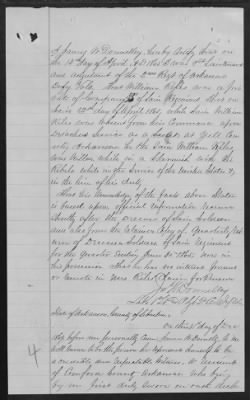 I James W Donnelley, hereby Certify that on
the 12th day of April, AD 1865 I was 1st Lieutenant
and adjutant of the 2nd Regt of Arkansas
Infty Vols. That William Riles was a pri
vate of Company of Said Regiment that on
Said 12th day of April 1865 while Said William
Riles was absent from his Command upon
Detached Service as a Scout at Yell Coun
ty Arkansas he the Said William Riles
was Killed while in a Skirmish with the
Rebels while in the Service of the United States &
in the line of his duty
That his Knowledge of the facts above Stated
is based upon official information received
Shortly after the decease of Said Soldier
and also from the retained Copy of Quarterly Re
turn of Deceased Soldiers of Said Regiment
for the Quarter Ending June 30th 1865 now in
his possession that he has no interest present
or remote in Mrs Riles Claim for Pension
Jas W Donnelley
State of Arkansas, County of
On this day of
before me personally Came James W Donnelly to me
well known to be the person he represents himself to be
a credible and reputable Citizen, &amp; resident
of County Arkansas who being
by me first duly Sworn on oath
4